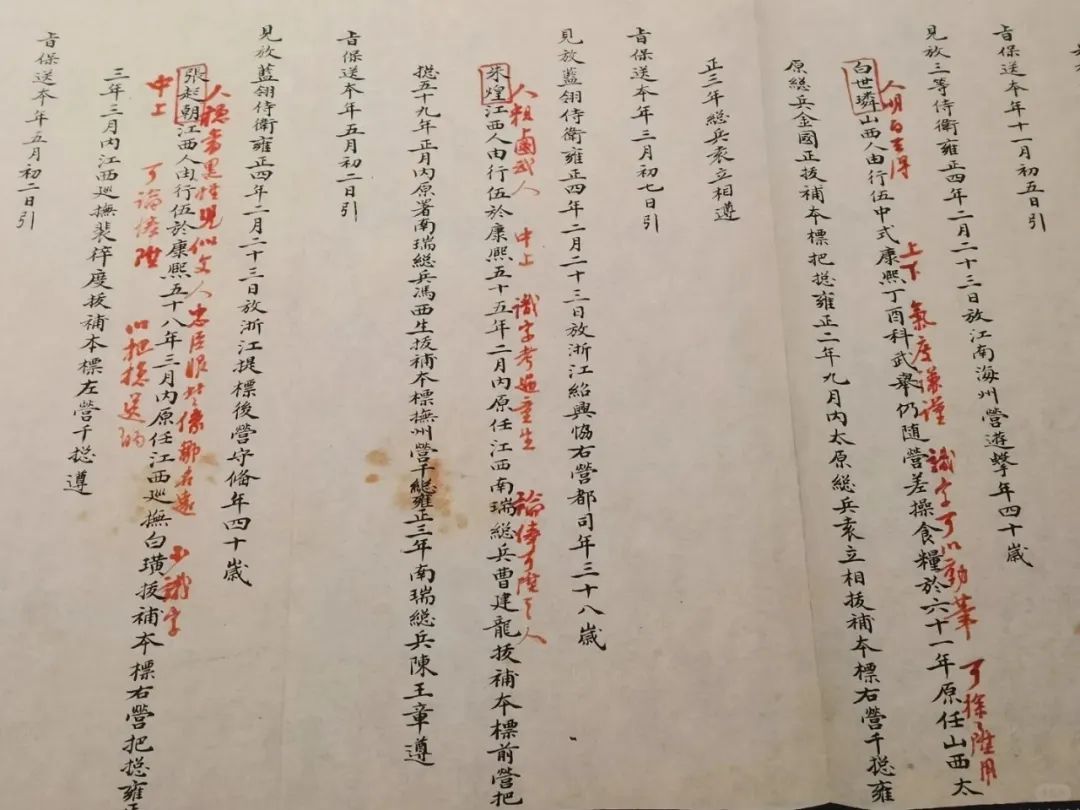 旨保送本年十一月初五日引
見放三等侍衛雍正四年二月二十三日放江南海州營遊擊年四十歲
白世璘山西人由行伍中式康熙丁酉科武舉仍隨營差操食糧於六十一年原任山西太
人明白去得 上下 氣度謹慎 識字可以動筆 可操陞用
原總兵金國正拔補本標把摠雍正二年九月內太原總兵袁立相拔補本標右營千摠雍
正三年總兵袁立相遵
旨保送本年三月初七日引
見放藍翎侍衛雍正四年二月二十三日放浙江紹興恊右營都司年三十八歲
朱煌江西人由行伍於康熙五十五年二月內原任江西南瑞總兵曹建龍拔補本標前營把
人粗鹵武人 中上 識字 論俸可陞之人
摠五十九年正月內原署南瑞總兵馮西生拔補本標撫州營千總雍正三年南瑞總兵陳王章遵
旨保送本年五月初二日引
見放藍翎侍衛雍正四年二月二十三日放浙江提標後營守俻年四十歲
張起朝江西人由行伍於康熙五十八年三月內原任江西巡撫白璜拔補本標右營把摠雍正
人 似文人忠厚 少識字
中上 可論俸陞 以把摠送的
三年三月內江西巡撫裴𢕬度拔補本標左營千摠遵
旨保送本年五月初二日引